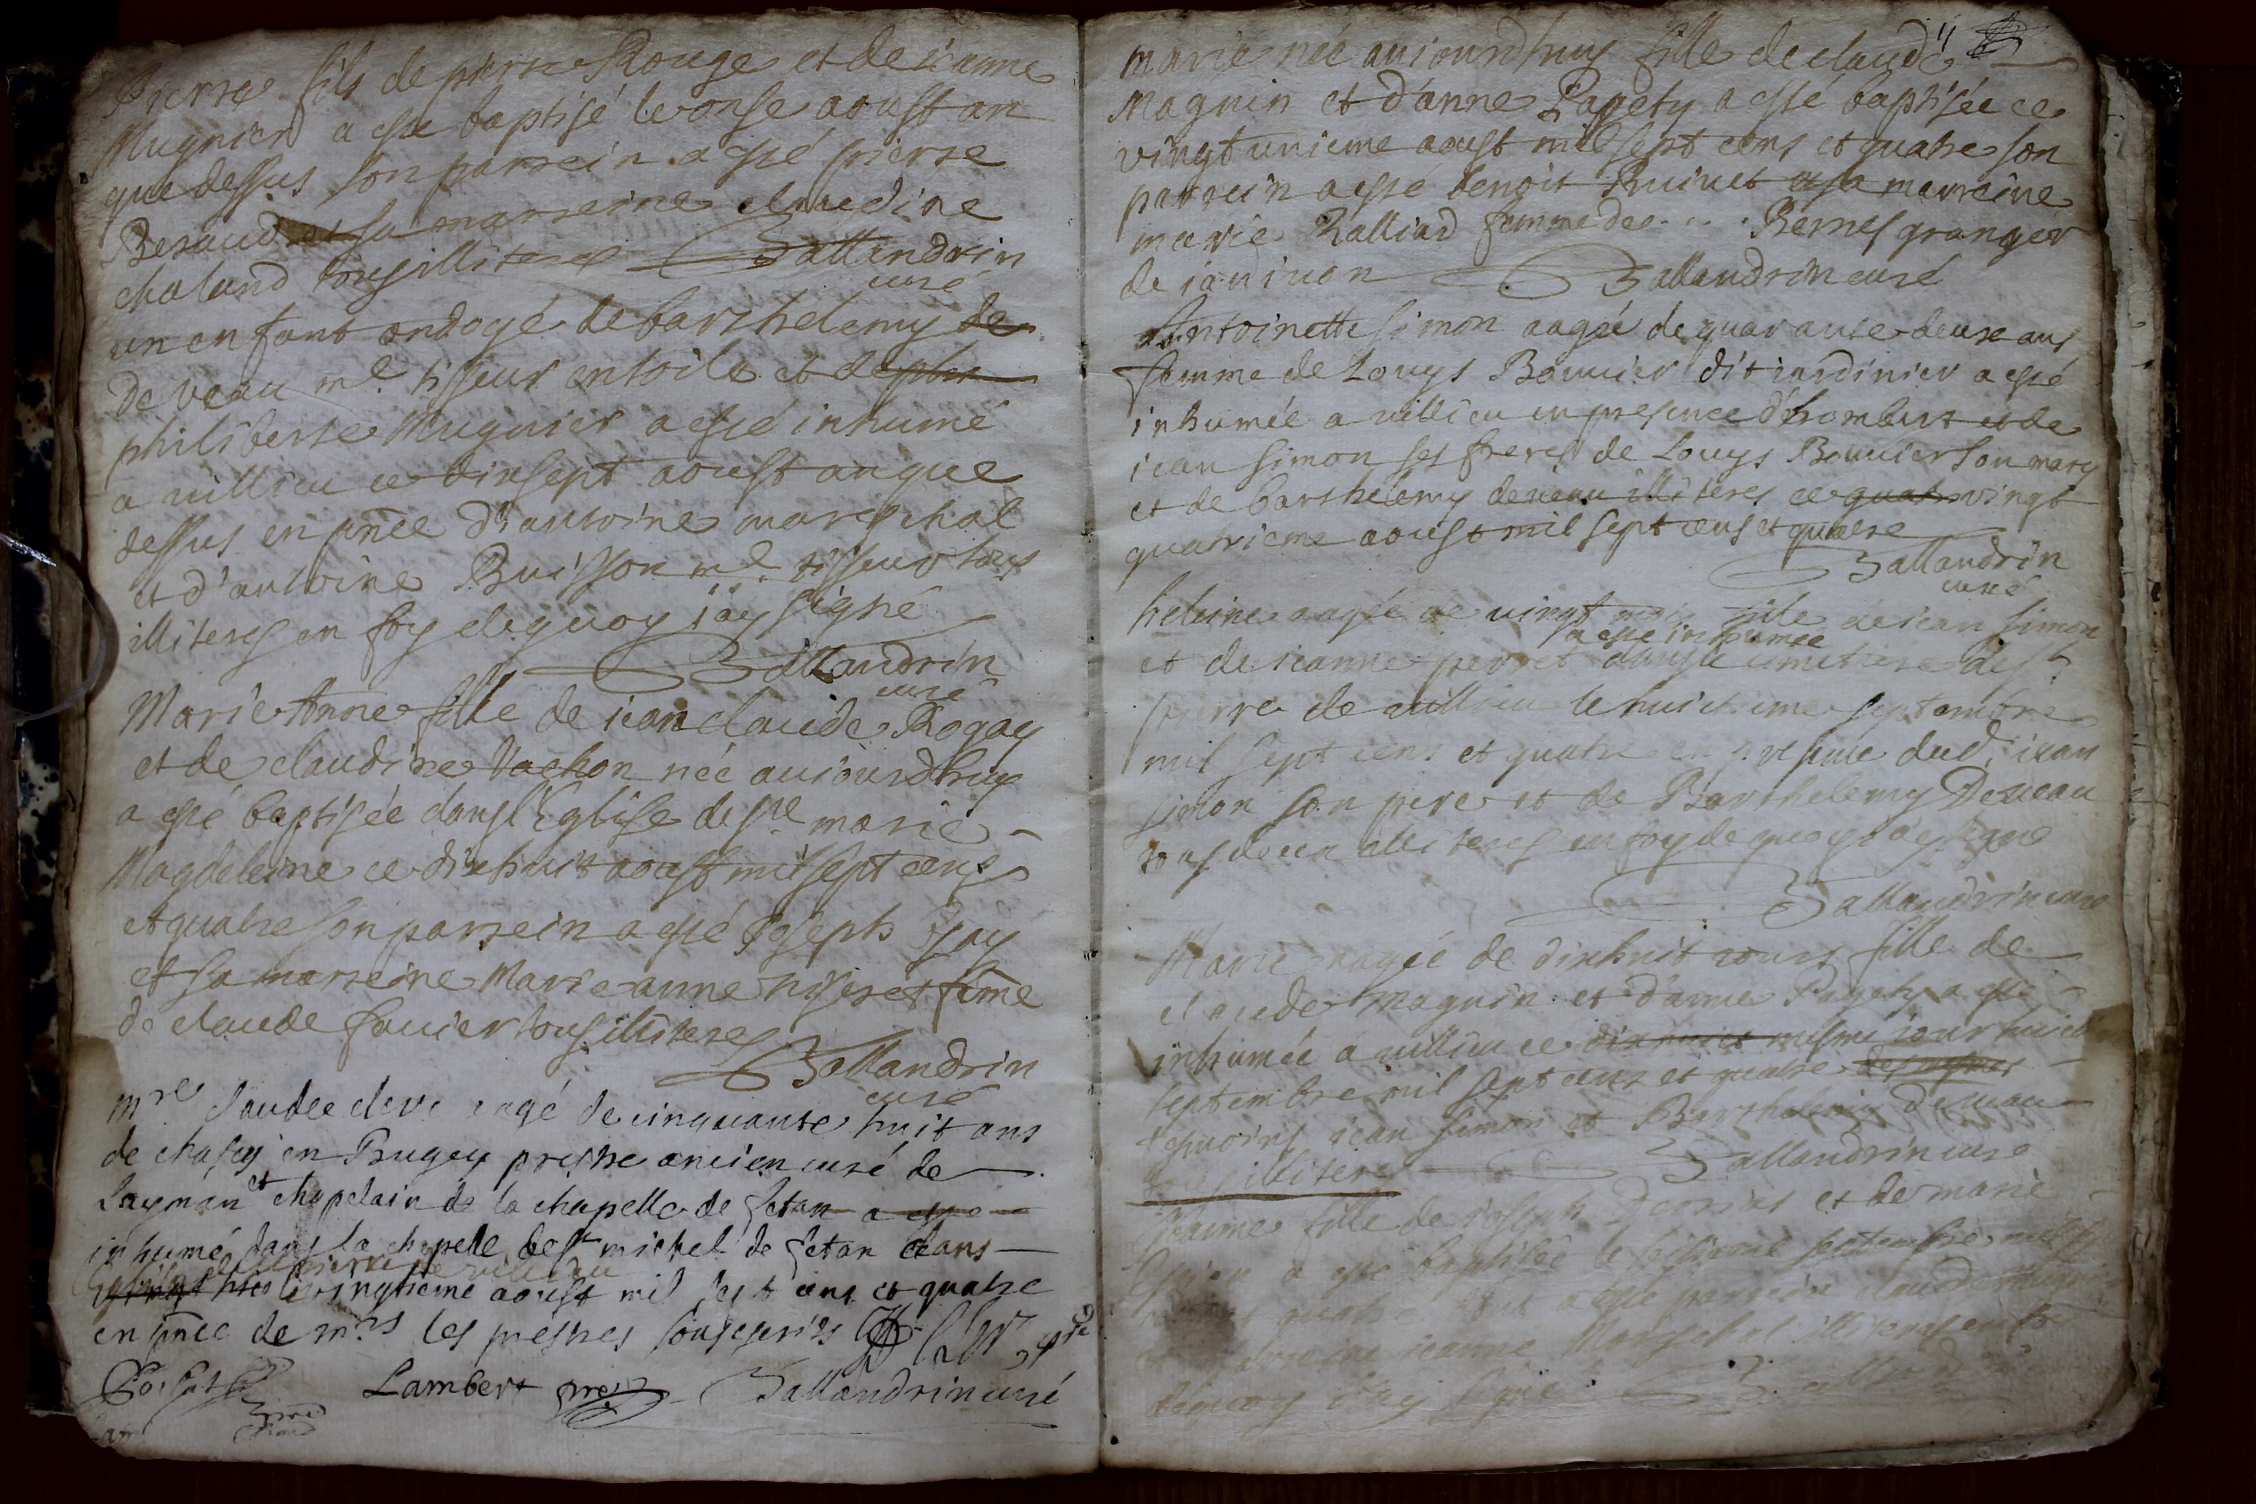 Pierre fils de pierre Rouge et de ieanne
Mugnier a esté baptisé le onse aoust an
que dessus son parrein a esté pierre
Beraud et sa marreine claudine
chaland tous illiteres Ballandrin
curé
un enfant ondoyé de barthelemy de
de veau me tisseur en toile et de
philiberte Mugnier a esté inhumé
a uillieu ce dixsept aoust an que
dessus en pnce d'antoine mareschal
et d'antoine Buisson me tisseur tous
illiteres en foy dequoy i'ay signé
Ballandrin
curé
Marie Anne fille de iean claude Rogay
et de claudine Vachon née auiourdhuy
a esté baptisée dans l'Eglise de ste marie
Magdeleine ce dixhuit aoust mil sept cens
et quatre son parrein a esté Joseph Gay
et sa marreine Marie anne fême
de claude fauier tous illiteres
Ballandrin
curé
mre claude aagé de cinquante huit ans
de chasey en Bugey prestre ancien curé de
Layman et chapelain de la chapelle de Jetan a esté
inhumé dans la chapelle de st michel de Jetan dans
le vingtieme aoust mil sept cens et quatre
en pnce de mrs les prestres souscrits
Lambert pre Ballandrin curé
11
marie née auiourdhuy fille de claude
Magnin et d'anne Pagety a esté baptisée ce
vingt unieme aoust mil sept cens et quatre son
parrein a esté benoit et sa marreine
marie Ralliard femme de . . . Bernes granger
de Ballandrin curé
Antoinette Simon aagée de quarante deuxe ans
femme de Louys Bouuier dit iardinier a esté
inhumée a uillieu en presence d'hombert et de
iean Simon ses freres de Louys Bouuier son mary
et de barthelemy deueau illiteres ce quatre vingt
quatrieme aoust mil sept cens et quatre
Ballandrin
curé
heleine aagée de vingt mois fille de iean Simon
a esté inhumée
et de ieanne perret dans le cimetiere de st
pierre de uillieu le huictieme septembre
mil sept cens et quatre en presence dud. iean
Simon son pere et de Barthelemy Deueau
tous deux illiteres en foy de quoy i'ay signé
Ballandrin curé
Marie aagée de dixhuit iours fille de
claude Magnin et d'anne Pagety a esté
inhumée a uillieu ce mesme iour huict
septembre mil sept cens et quatre
tesmoins iean Simon et Barthelemy Deueau
tous illiteres Ballandrin curé
fille de ioseph et de marie
a esté baptisée le septembre mil
quatre a esté parrein
ieanne Mareschal illiteres en foy
dequoy i'ay signé